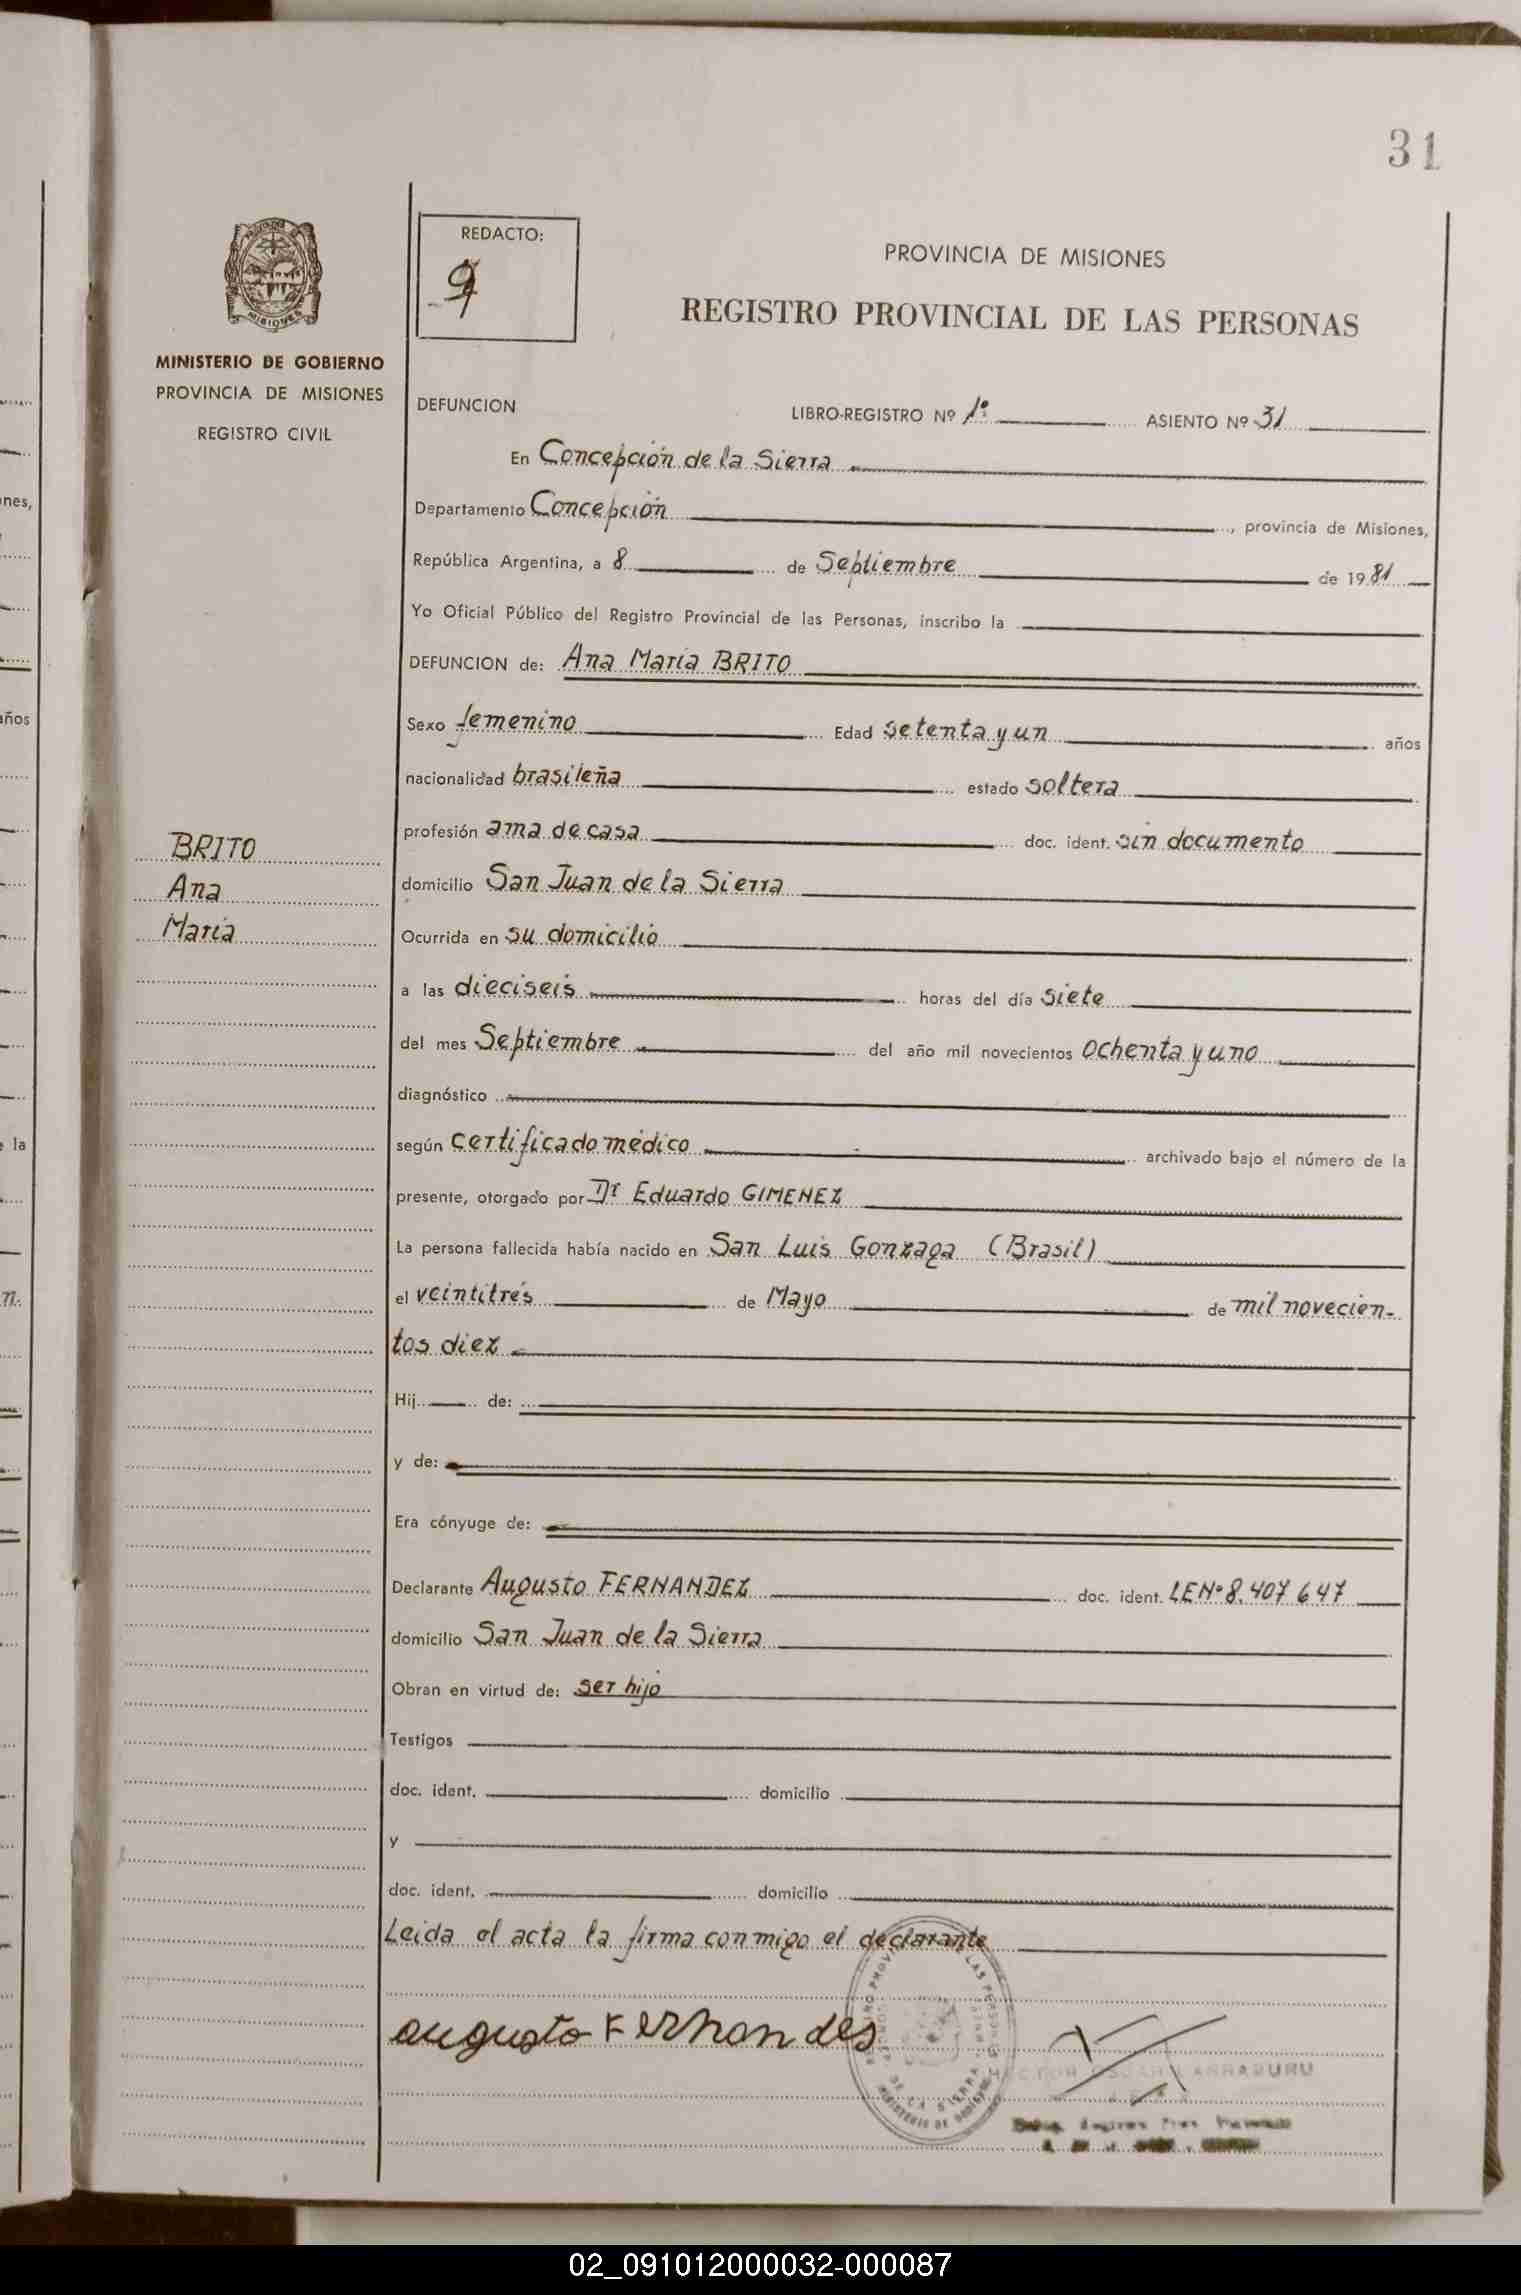 31
REDACTO:
PROVINCIA DE MISIONES
REGISTRO PROVINCIAL DE LAS PERSONAS
MISIONES
MINISTERIO DE GOBIERNO
PROVINCIA DE MISIONES
REGISTRO CIVIL
DEFUNCION LIBRO-REGISTRO Nº 1º ASIENTO Nº 31
En Concepción de la Sierra
Departamento Concepción, provincia de Misiones,
República Argentina, a 8 de Septiembre de 1981
Yo Oficial Público del Registro Provincial de las Personas, inscribo la
DEFUNCION de: Ana María BRITO
Sexo femenino Edad setenta y un años
nacionalidad brasileña estado soltera
profesión ama de casa doc. ident. sin documento
BRITO
Ana
María
domicilio San Juan de la Sierra
Ocurrida en su domicilio
a las dieciseis horas del día siete
del mes Septiembre del año mil novecientos ochenta y uno
diagnóstico
según certificado médico archivado bajo el número de la
presente, otorgado por Dr Eduardo GIMENEZ
La persona fallecida había nacido en San Luis Gonzaga (Brasil)
el veintitrés de Mayo de mil novecien-
tos diez
Hij de:
y de:
Era cónyuge de:
Declarante Augusto FERNANDEZ doc. ident. LENº 8.407 647
domicilio San Juan de la Sierra
Obran en virtud de: ser hijo
Testigos
doc. ident. domicilio
y
doc. ident. domicilio
Leida el acta la firma conmigo el declarante
augusto Fernandes
02_091012000032-000087